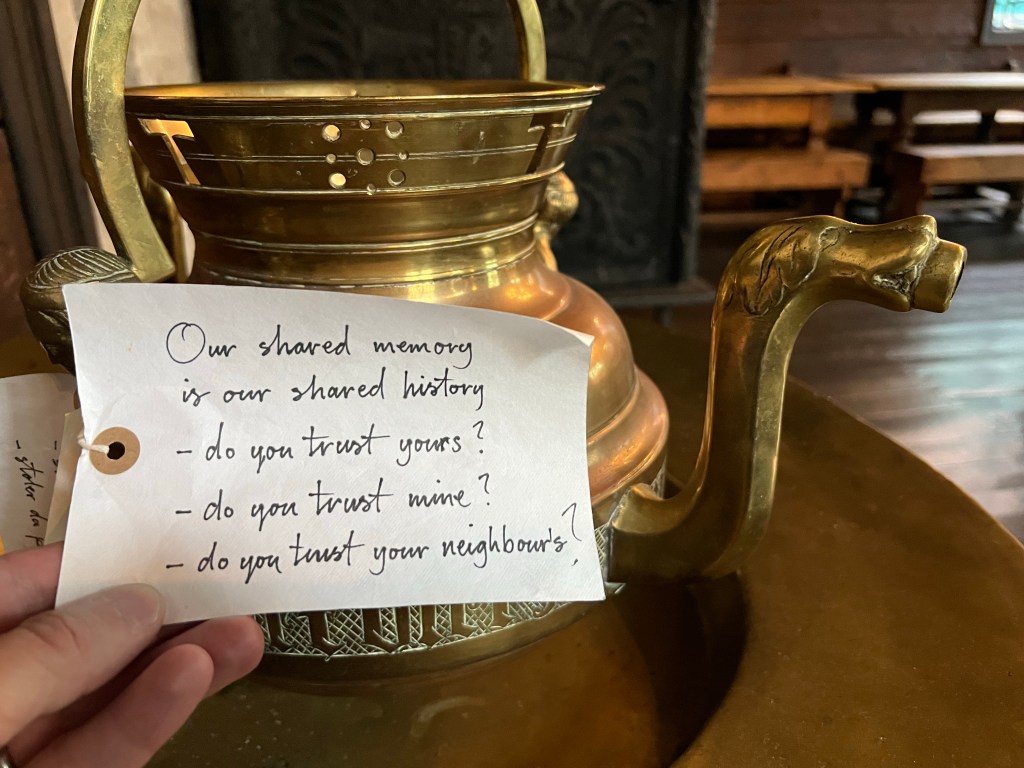 Our shared memory
is our shared history
- do you trust yours?
- do you trust mine?
- do you trust your neighbour's?
- stoler du